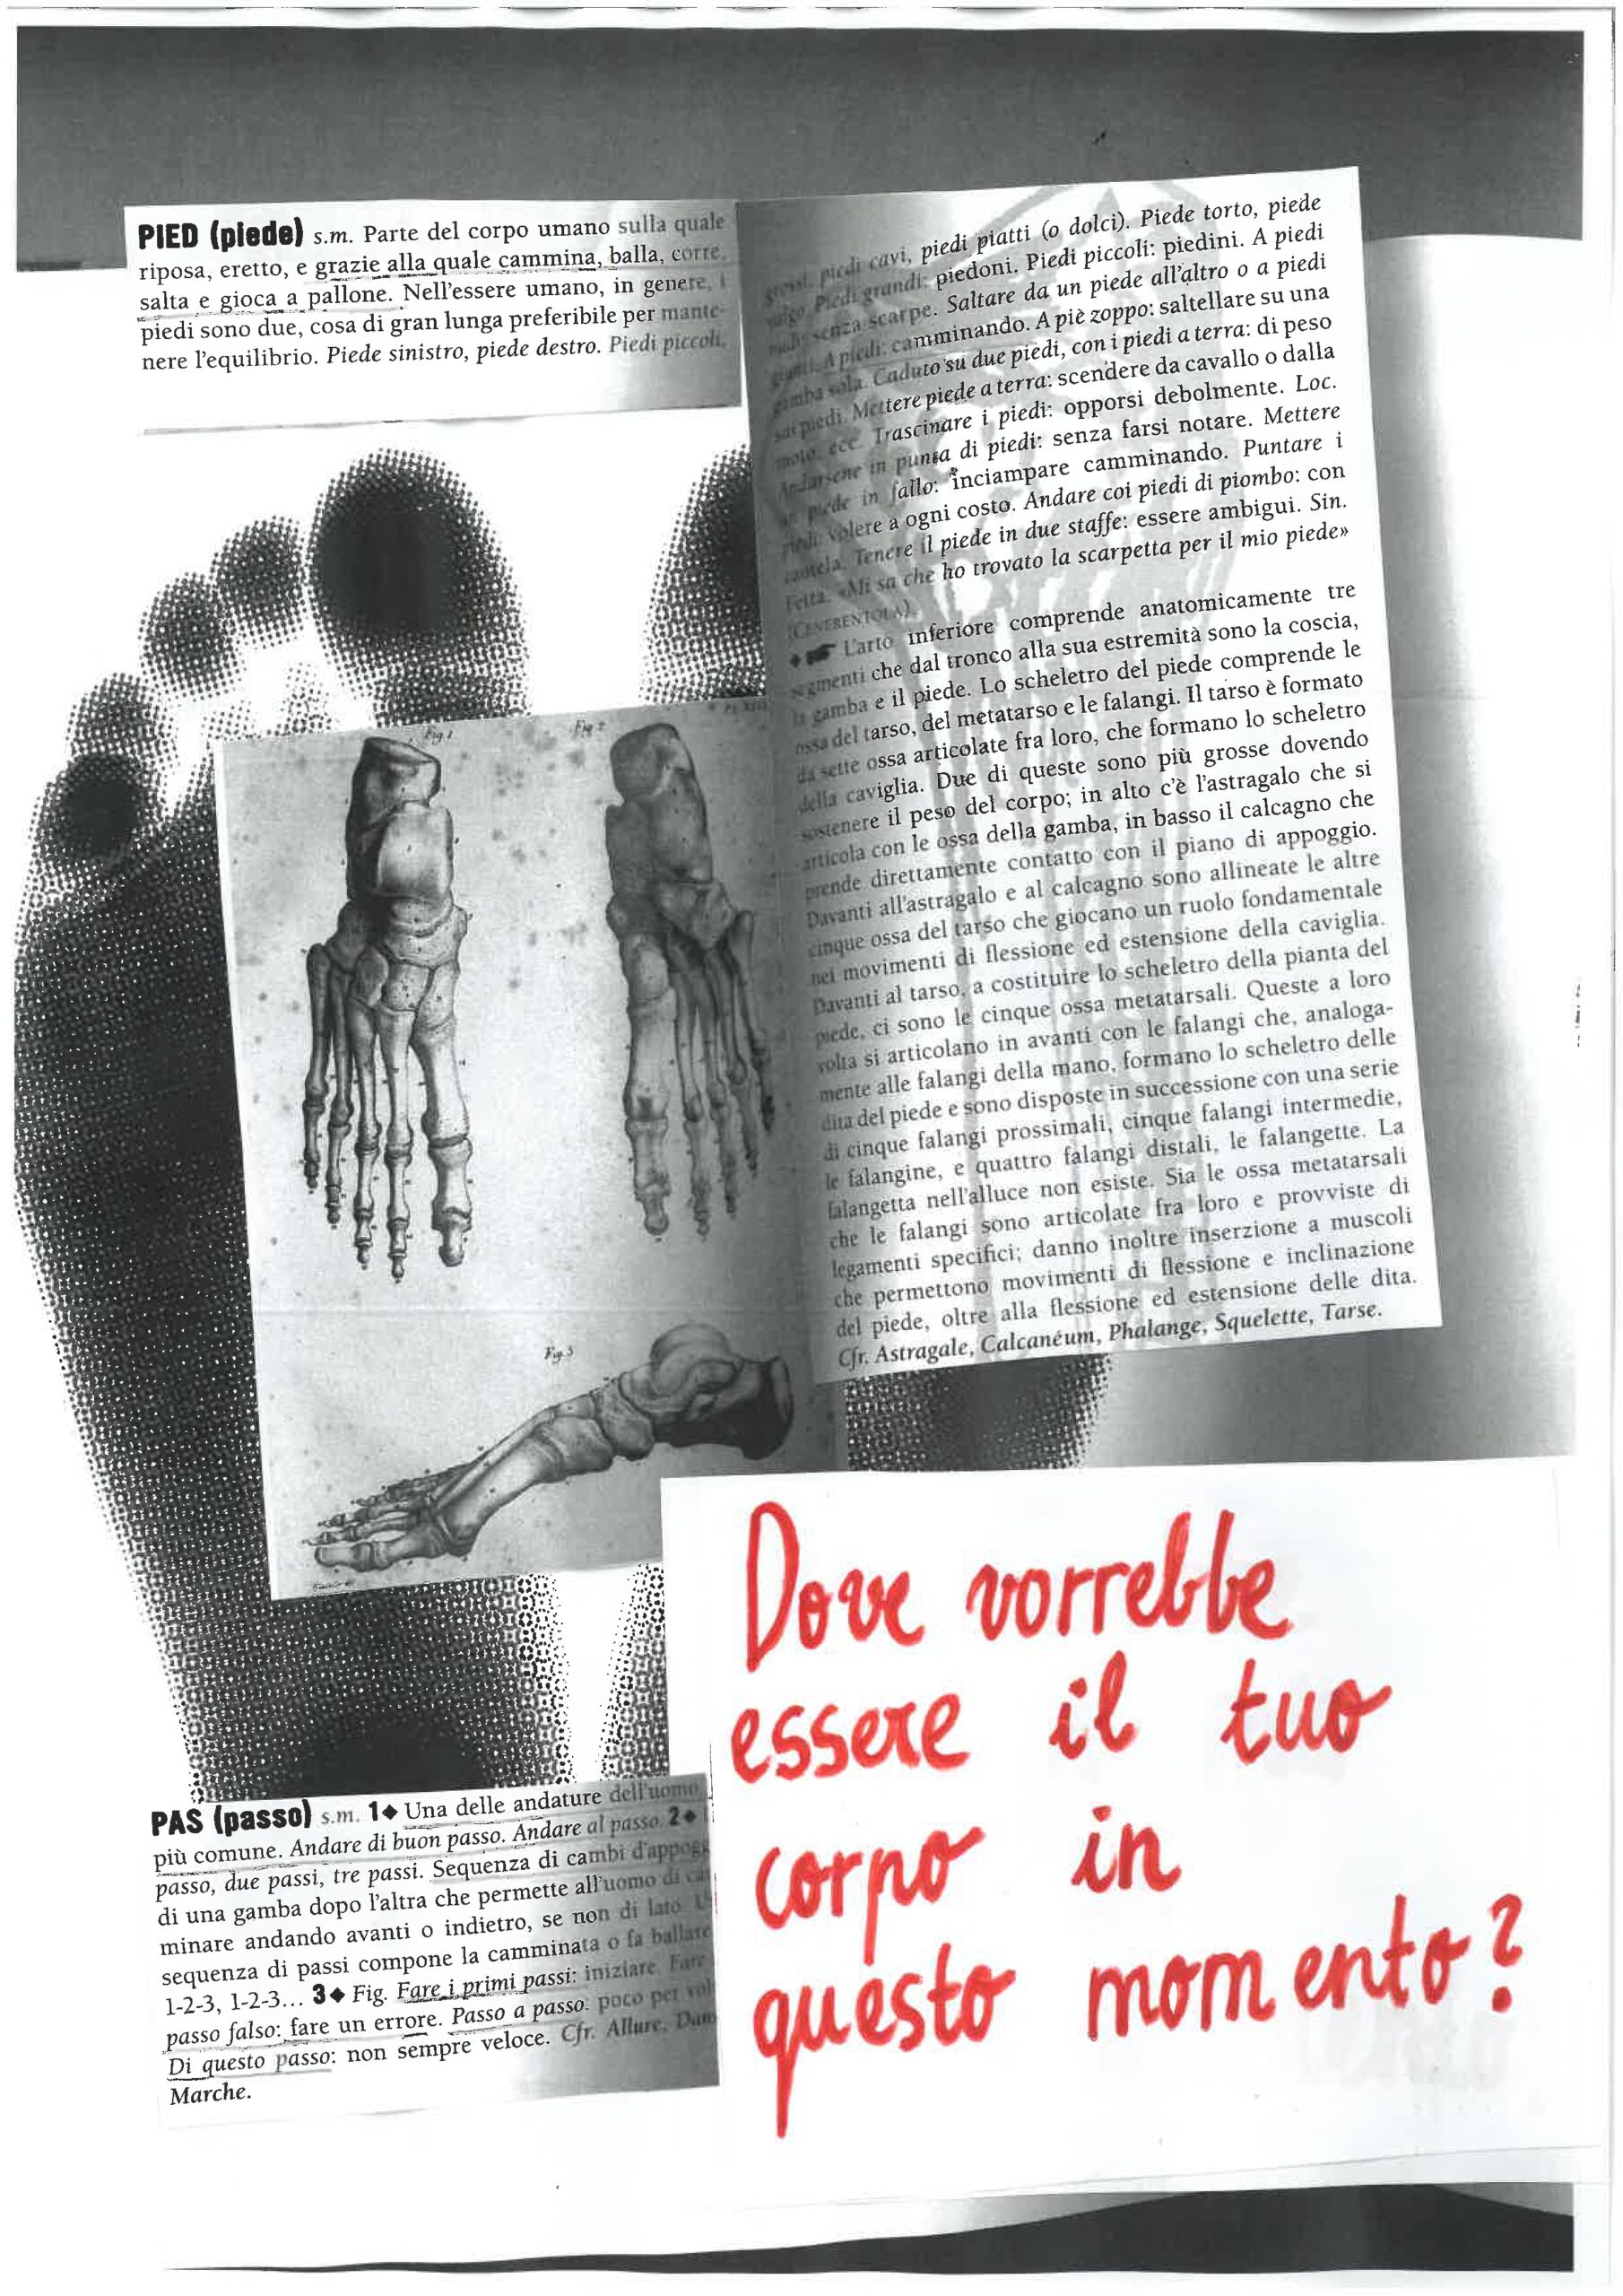 PIED (piede) s.m. Parte del corpo umano sulla quale
riposa, eretto, e grazie alla quale cammina, balla, corre,
salta e gioca a pallone. Nell'essere umano, in genere, i
piedi sono due, cosa di gran lunga preferibile per mante-
nere l'equilibrio. Piede sinistro, piede destro. Piedi piccoli,
grossi, piedi cavi, piedi piatti (o dolci). Piede torto, piede
valgo. Piedi grandi: piedoni. Piedi piccoli: piedini. A piedi
nudi: senza scarpe. Saltare da un piede all'altro o a piedi
giunti. A piedi: camminando. A piè zoppo: saltellare su una
gamba sola. Caduto su due piedi, con i piedi a terra: di peso
sui piedi. Mettere piede a terra: scendere da cavallo o dalla
moto, ecc. Trascinare i piedi: opporsi debolmente. Loc.
Andarsene in punta di piedi: senza farsi notare. Mettere
un piede in fallo: inciampare camminando. Puntare i
piedi: volere a ogni costo. Andare coi piedi di piombo: con
cautela. Tenere il piede in due staffe: essere ambigui. Sin.
Fetta. «Mi sa che ho trovato la scarpetta per il mio piede»
(CENERENTOLA).
◆ ☛ L'arto inferiore comprende anatomicamente tre
segmenti che dal tronco alla sua estremità sono la coscia,
la gamba e il piede. Lo scheletro del piede comprende le
ossa del tarso, del metatarso e le falangi. Il tarso è formato
da sette ossa articolate fra loro, che formano lo scheletro
della caviglia. Due di queste sono più grosse dovendo
sostenere il peso del corpo; in alto c'è l'astragalo che si
articola con le ossa della gamba, in basso il calcagno che
prende direttamente contatto con il piano di appoggio.
Davanti all'astragalo e al calcagno sono allineate le altre
cinque ossa del tarso che giocano un ruolo fondamentale
nei movimenti di flessione ed estensione della caviglia.
Davanti al tarso, a costituire lo scheletro della pianta del
piede, ci sono le cinque ossa metatarsali. Queste a loro
volta si articolano in avanti con le falangi che, analoga-
mente alle falangi della mano, formano lo scheletro delle
dita del piede e sono disposte in successione con una serie
di cinque falangi prossimali, cinque falangi intermedie,
le falangine, e quattro falangi distali, le falangette. La
falangetta nell'alluce non esiste. Sia le ossa metatarsali
che le falangi sono articolate fra loro e provviste di
legamenti specifici; danno inoltre inserzione a muscoli
che permettono movimenti di flessione e inclinazione
del piede, oltre alla flessione ed estensione delle dita.
Cfr. Astragale, Calcanéum, Phalange, Squelette, Tarse.
Fig. 1
Fig. 2
Fig. 3
PAS (passo) s.m. 1◆ Una delle andature dell'uomo,
più comune. Andare di buon passo. Andare al passo. 2◆
passo, due passi, tre passi. Sequenza di cambi d'appogg
di una gamba dopo l'altra che permette all'uomo di ca
minare andando avanti o indietro, se non di lato. U
sequenza di passi compone la camminata o fa ballare
1-2-3, 1-2-3... 3◆ Fig. Fare i primi passi: iniziare. Fare
passo falso: fare un errore. Passo a passo: poco per vol
Di questo passo: non sempre veloce. Cfr. Allure, Dan
Marche.
Dove vorrebbe
essere il tuo
corpo in
questo momento?